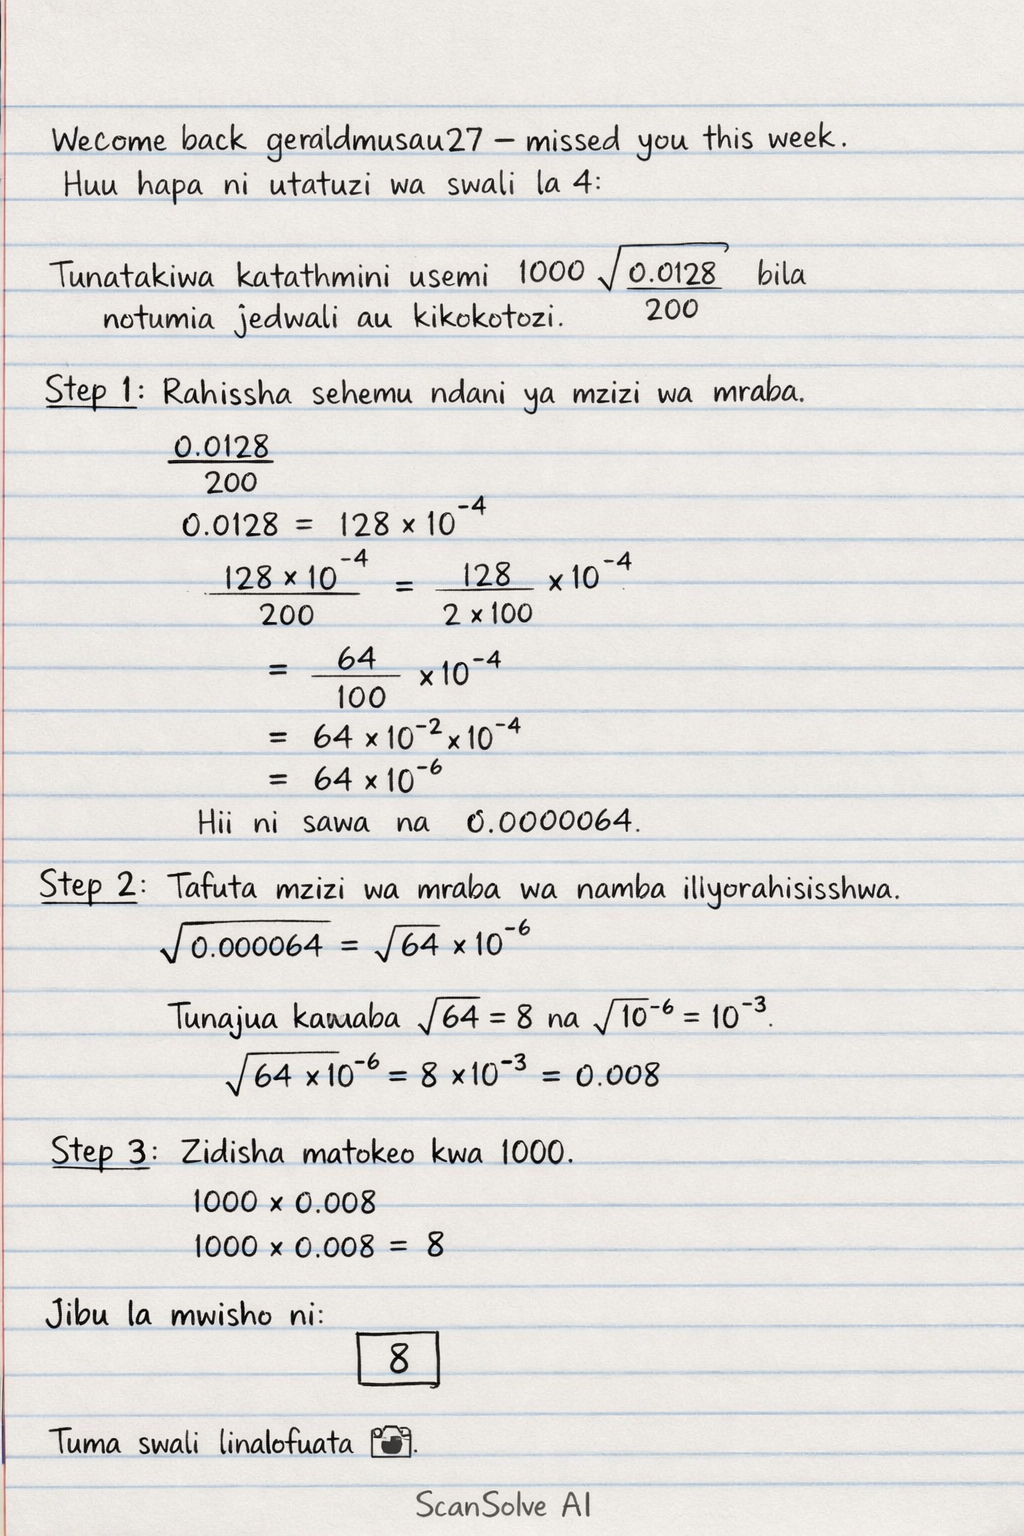 Wecome back geraldmusau27 – missed you this week.
Huu hapa ni utatuzi wa swali la 4:
Tunatakiwa katathmini usemi 1000 √(0.0128/200) bila
notumia jedwali au kikokotozi.
Step 1: Rahissha sehemu ndani ya mzizi wa mraba.
0.0128
200
0.0128 = 128 × 10⁻⁴
128 × 10⁻⁴ / 200 = 128 / 2 × 100 × 10⁻⁴
= 64 / 100 × 10⁻⁴
= 64 × 10⁻² × 10⁻⁴
= 64 × 10⁻⁶
Hii ni sawa na 0.0000064.
Step 2: Tafuta mzizi wa mraba wa namba illyorahisisshwa.
√0.000064 = √64 × 10⁻⁶
Tunajua √64 = 8 na √10⁻⁶ = 10⁻³.
√64 × 10⁻⁶ = 8 × 10⁻³ = 0.008
Step 3: Zidisha matokeo kwa 1000.
1000 × 0.008
1000 × 0.008 = 8
Jibu la mwisho ni:
8
Tuma swali linalofuata 📷.
ScanSolve AI